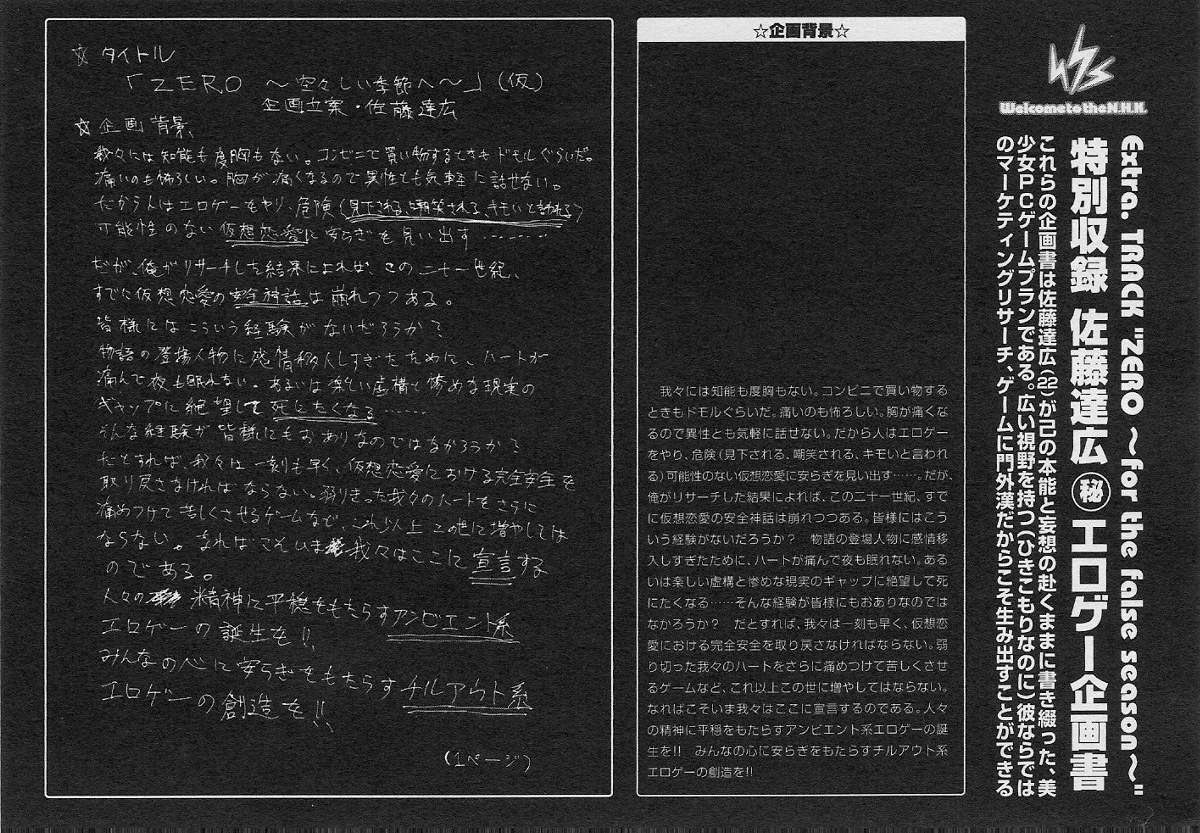 Welcome to the N.H.K.
Extra. TRACK "ZERO ～for the false season～"
特別収録 佐藤達広㊙エロゲー企画書
これらの企画書は佐藤達広(22)が己の本能と妄想の赴くままに書き綴った、美
少女PCゲームプランである。広い視野を持つ(ひきこもりなのに)彼ならでは
のマーケティングリサーチ、ゲームに門外漢だからこそ生み出すことができる
☆企画背景☆
我々には知能も度胸もない。コンビニで買い物する
ときもドモルぐらいだ。痛いのも怖ろしい。胸が痛くな
るので異性とも気軽に話せない。だから人はエロゲー
をやり、危険(見下される、嘲笑される、キモいと言われ
る)可能性のない仮想恋愛に安らぎを見い出す……。だが、
俺がリサーチした結果によれば、この二十一世紀、すで
に仮想恋愛の安全神話は崩れつつある。皆様にはこう
いう経験がないだろうか？　物語の登場人物に感情移
入しすぎたために、ハートが痛んで夜も眠れない。ある
いは楽しい虚構と惨めな現実のギャップに絶望して死
にたくなる……そんな経験が皆様にもおありなのでは
なかろうか？　だとすれば、我々は一刻も早く、仮想恋
愛における完全安全を取り戻さなければならない。弱
り切った我々のハートをさらに痛めつけて苦しくさせ
るゲームなど、これ以上この世に増やしてはならない。
なればこそいま我々はここに宣言するのである。人々
の精神に平穏をもたらすアンビエント系エロゲーの誕
生を!!　みんなの心に安らぎをもたらすチルアウト系
エロゲーの創造を!!
☆タイトル
「ZERO ～空々しい季節へ～」(仮)
企画立案・佐藤達広
☆企画背景
我々には知能も度胸もない。コンビニで買い物するときもドモルぐらいだ。
痛いのも怖ろしい。胸が痛くなるので異性とも気軽に話せない。
だから人はエロゲーをヤリ、危険(見下される、嘲笑される、キモいと言われる)
可能性のない仮想恋愛に安らぎを見い出す………
だが、俺がリサーチした結果によれば、この二十一世紀、
すでに仮想恋愛の安全神話は崩れつつある。
皆様にはこういう経験がないだろうか？
物語の登場人物に感情移入しすぎたために、ハートが
痛んで夜も眠れない。あるいは楽しい虚構と惨めな現実の
ギャップに絶望して死にたくなる……
そんな経験が皆様にもおありなのではなかろうか？
だとすれば、我々は一刻も早く、仮想恋愛における完全安全を
取り戻さなければならない。弱りきった我々のハートをさらに
痛めつけて苦しくさせるゲームなど、これ以上この世に増やしては
ならない。なればこそいま我々はここに宣言する
のである。
人々の精神に平穏をもたらすアンビエント系
エロゲーの誕生を!!
みんなの心に安らぎをもたらすチルアウト系
エロゲーの創造を!!
(1ページ)